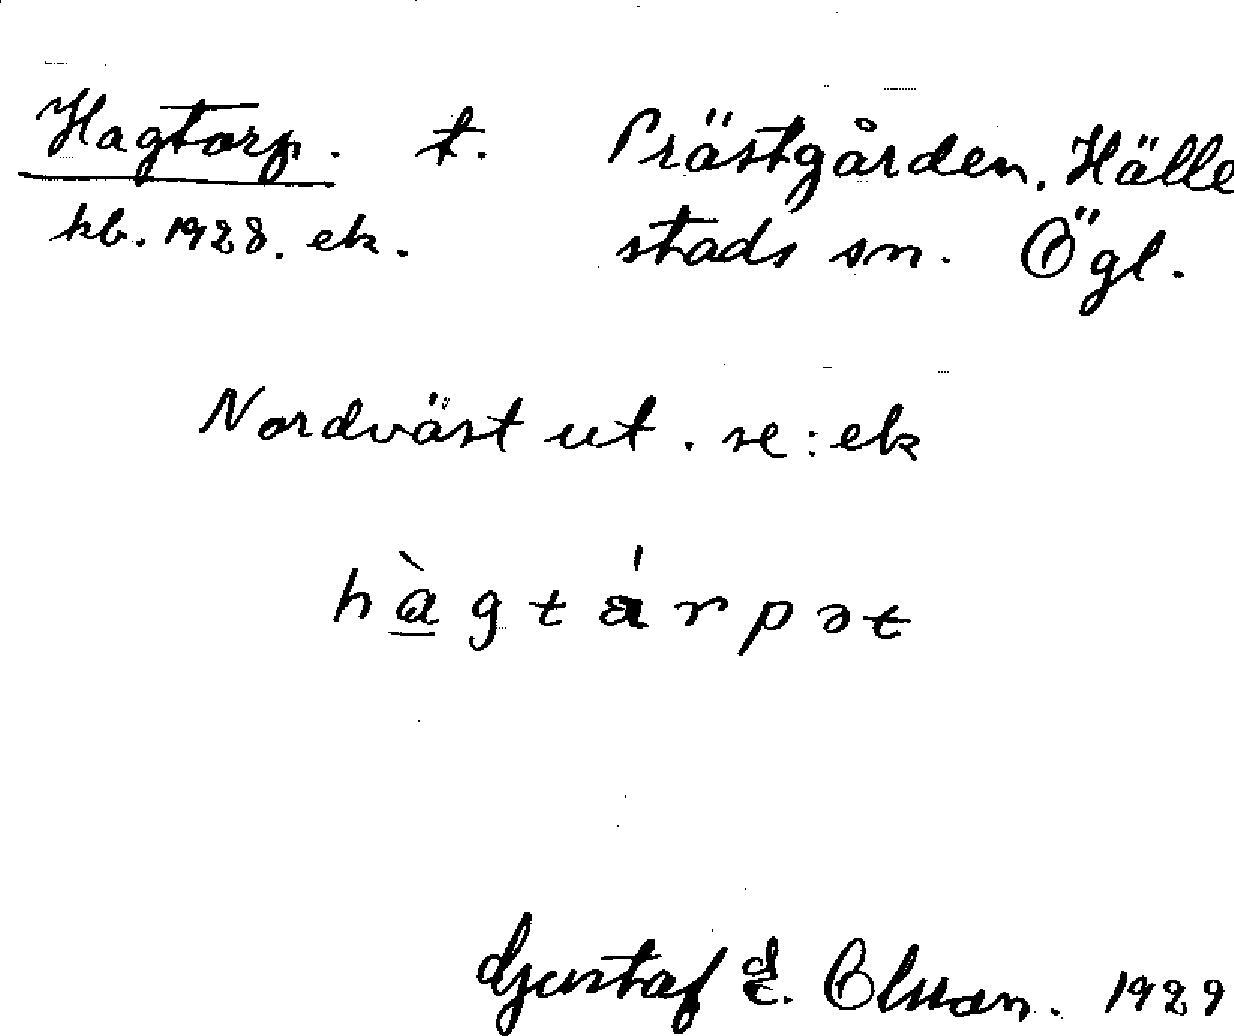 Hagtorp. t. Prästgården, Hälle
kb. 1928. ek. stads sn. Ögl.
Nordväst ut. se: ek
hàgtárpət
Gustaf E. Olsson. 1929